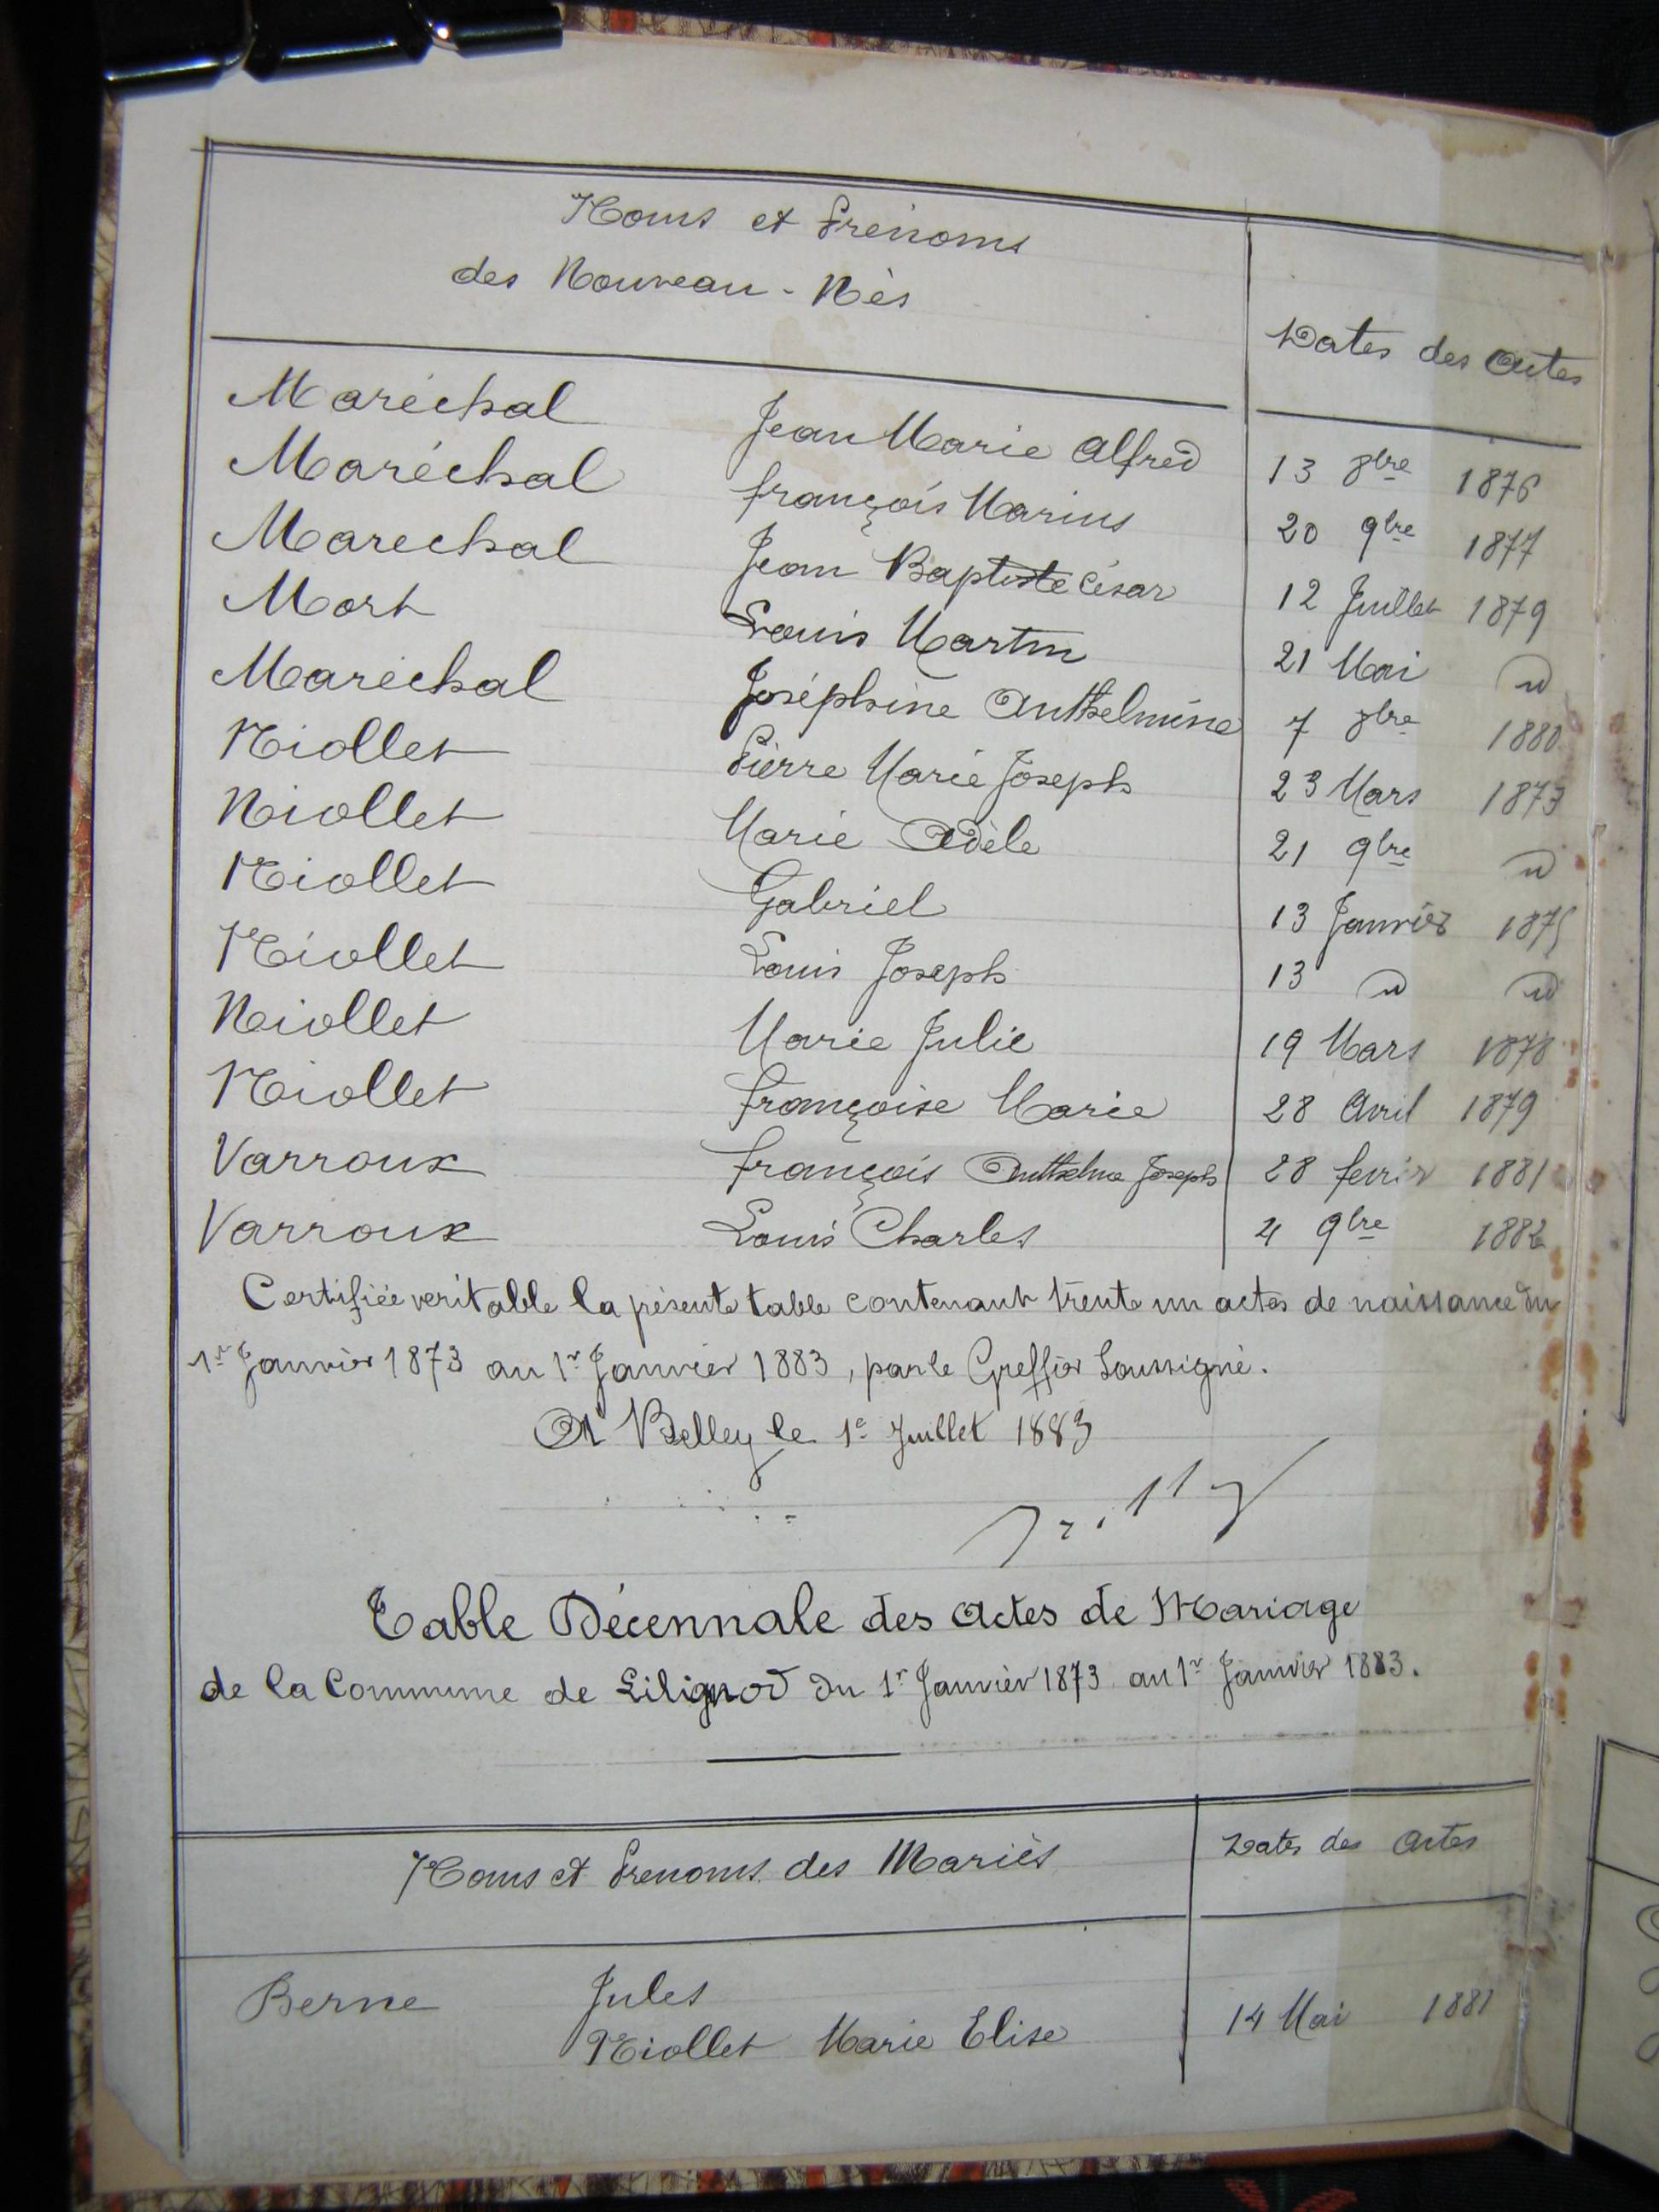 Noms et Prénoms
des Nouveau-Nés
Dates des Actes
Maréchal Jean Marie Alfred 13 8bre 1876
Maréchal François Marius 20 9bre 1877
Marechal Jean Baptiste César 12 Juillet 1879
Mort Louis Martin 21 Mai id
Maréchal Joséphine Anthelmine 7 8bre 1880
Niollet Pierre Marie Joseph 23 Mars 1873
Niollet Marie Adèle 21 9bre id
Niollet Gabriel 13 Janvier 1875
Niollet Louis Joseph 13 id id
Niollet Marie Julie 19 Mars 1878
Niollet Françoise Marie 28 Avril 1879
Varroux François Anthelme Joseph 28 fevrier 1881
Varroux Louis Charles 4 9bre 1882
Certifiée veritable la présente table contenant trente un actes de naissance du
1r Janvier 1873 au 1r Janvier 1883, par le Greffier Soussigné.
A Belley le 1e Juillet 1883
Table Décennale des Actes de Mariage
de la Commune de Lilignod du 1r Janvier 1873 au 1r Janvier 1883.
Noms et Prenoms des Mariés Dates des Actes
Berne Jules
Niollet Marie Elise 14 Mai 1881